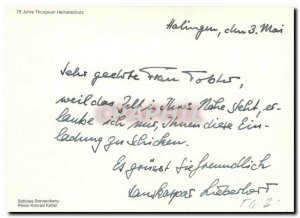 75 Jahre Thurgauer Heimatschutz
Halingen, den 3. Mai
Sehr geehrte Frau Tobler,
weil das Zelt in Ihrer Nähe steht, er-
laube ich mir, Ihnen diese Ein-
ladung zu schicken.
Es grüsst Sie freundlich
Hanskaspar Lieberherr
Schloss Sonnenberg
Photo Konrad Keller